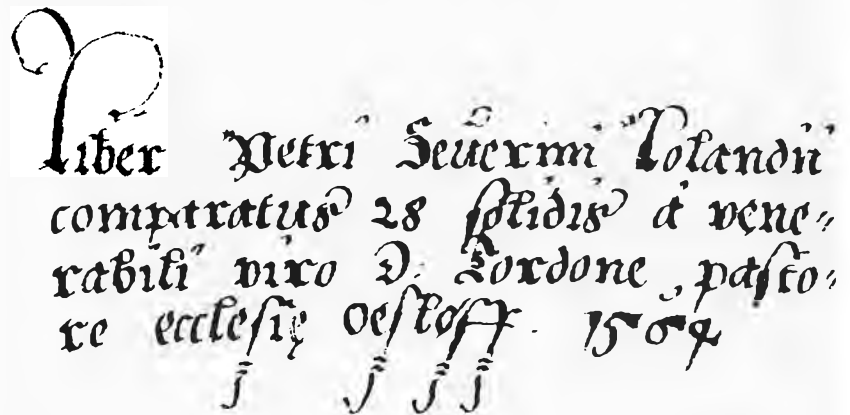 Liber Petri Seuerini Lolandij
comparatus 28 solidis à vene-
rabili viro D. Cordone pasto-
re ecclesię Oestoff. 1564